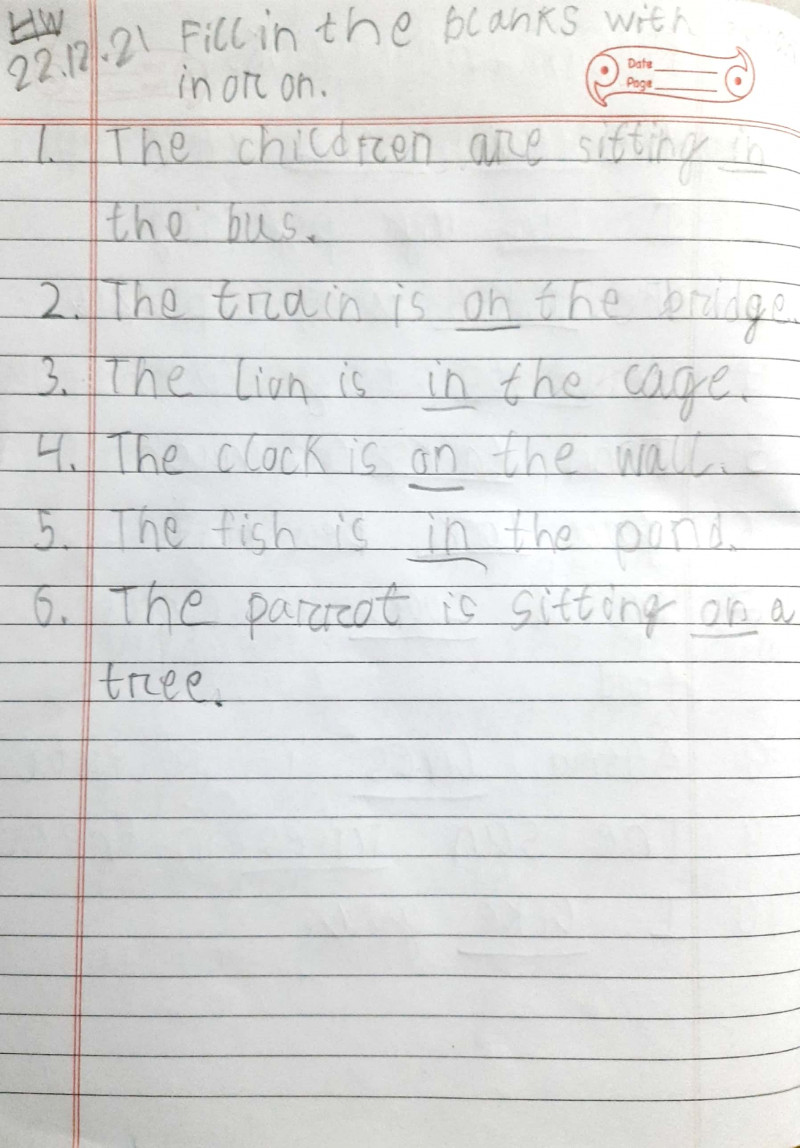 HW
22.12.21 Fill in the blanks with
in or on.
Date
Page
1. The children are sitting in
the bus.
2. The train is on the bridge.
3. The lion is in the cage.
4. The clock is on the wall.
5. The fish is in the pond.
6. The parrot is sitting on a
tree.